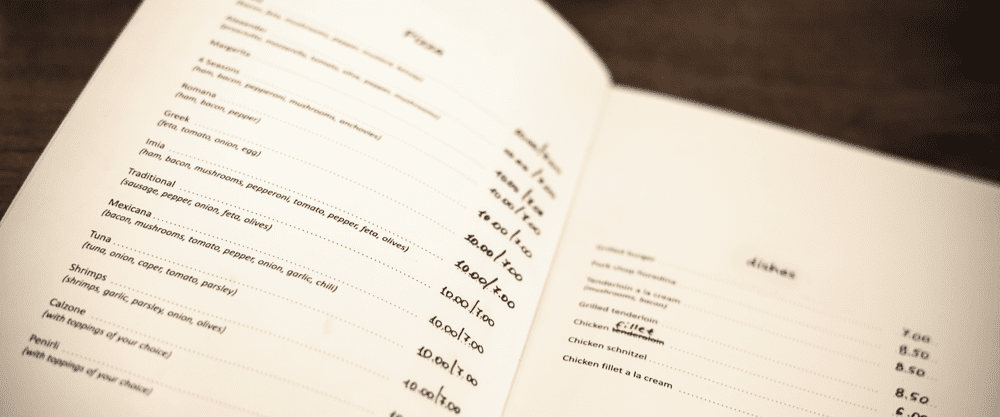 Pizza
(ham, feta, mushrooms, pepper,
Alexander
(prosciutto, mozzarella, tomato, olive, pepper, mushrooms)
Margarita
4 Seasons
(ham, bacon, pepperoni, mushrooms, anchovies)
Romana
(ham, bacon, pepper) 10.00/7.00
Greek 10.00/7.00
(feta, tomato, onion, egg)
Imia 10.00/7.00
(ham, bacon, mushrooms, pepperoni, tomato, pepper, feta, olives)
Traditional 10.00/7.00
(sausage, pepper, onion, feta, olives)
Mexicana 10.00/7.00
(bacon, mushrooms, tomato, pepper, onion, garlic, chili)
Tuna 10.00/7.00
(tuna, onion, caper, tomato, parsley)
Shrimps 10.00/7.00
(shrimps, garlic, parsley, onion, olives)
Calzone 10.00/7.00
(with toppings of your choice)
Penirli 10.00/7.00
(with toppings of your choice)
dishes
Grilled burger
Pork chop
Tenderloin a la cream 7.00
(mushrooms, bacon)
Grilled tenderloin 8.50
Chicken fillet tenderloin 8.50
Chicken schnitzel 8.50
Chicken fillet a la cream